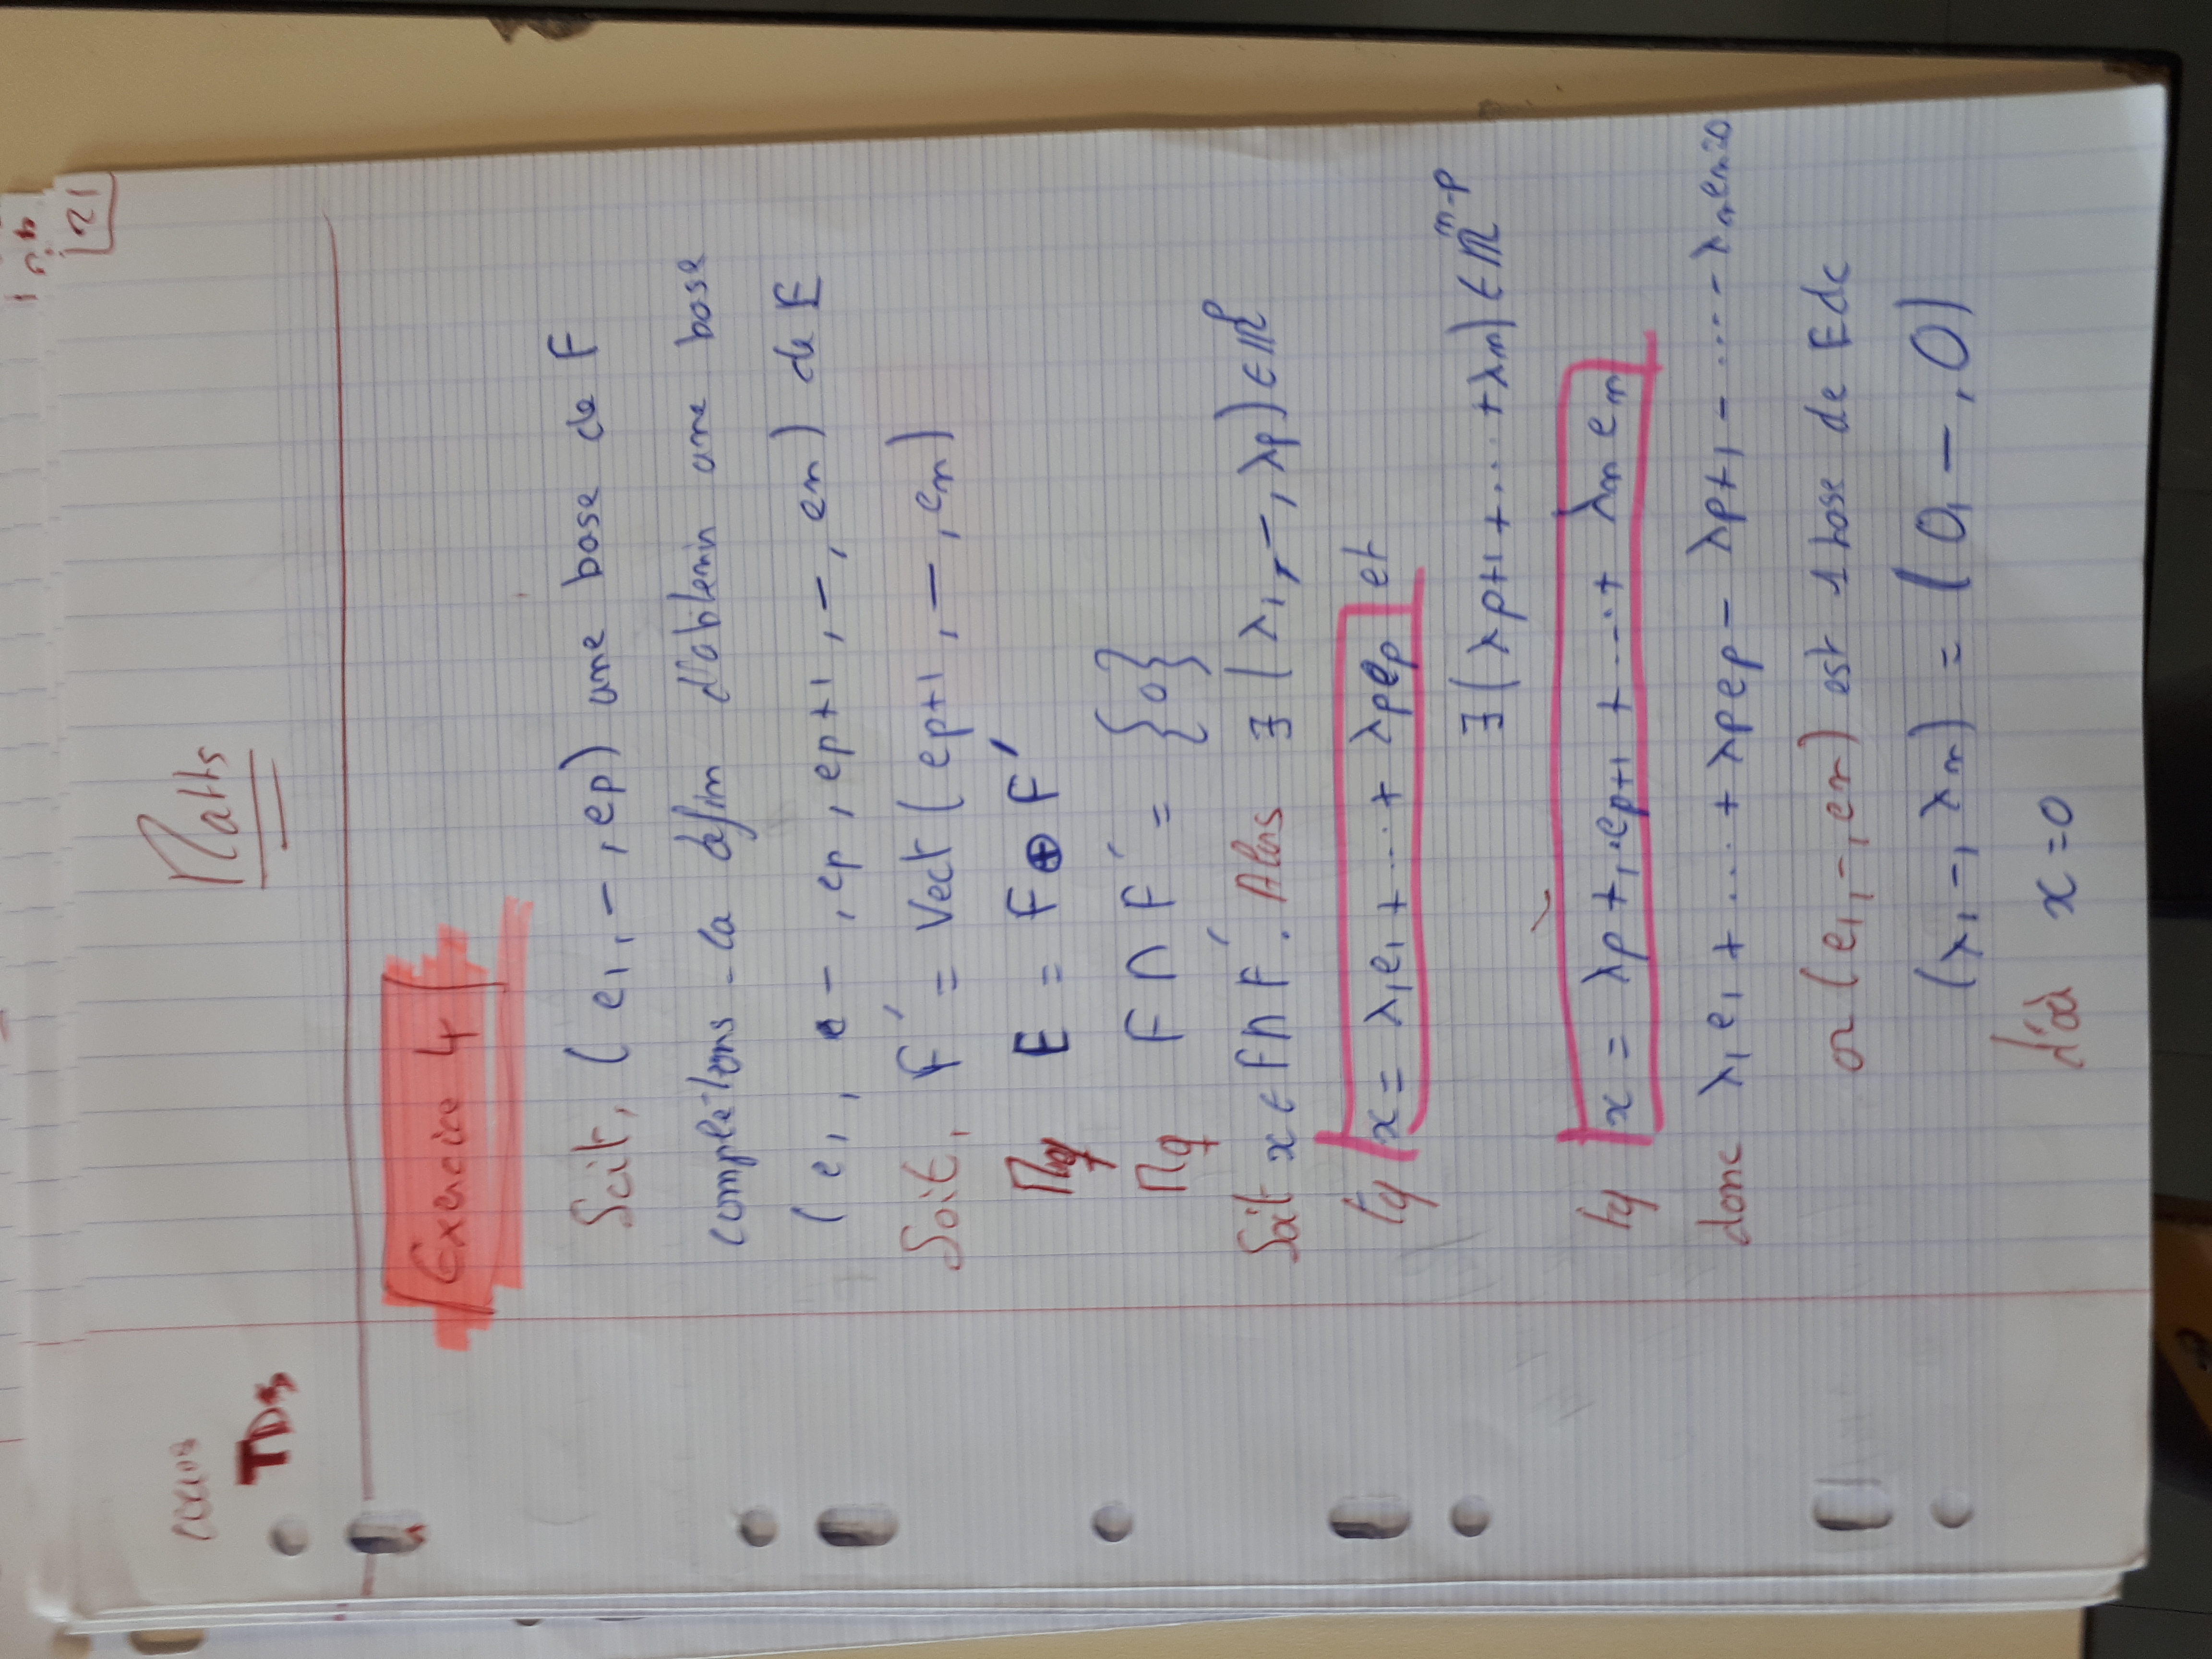 21
Maths
TD
Exercice 4
Soit, (e1, -, ep) une base de F
complétons-la afin d'obtenir une base
(e1, e -, ep, ep+1, -, en) de E
Soit, F' = Vect(ep+1, -, en)
Mq E = F ⊕ F'
Mq F ∩ F' = {0}
Soit x ∈ F∩F'. Alors ∃(λ1, -, λp) ∈ ℝ^p
tq x = λ1e1 + .... + λpep et
∃(λp+1 + .... + λn) ∈ ℝ^n-p
tq x = λp+1.ep+1 + ....+ λnen
donc λ1e1 + .... + λpep - λp+1 - .... - λnen=0
or (e1, -, en) est 1 base de E dc
(λ1 -, λn) = (0, -, 0)
d'où x = 0